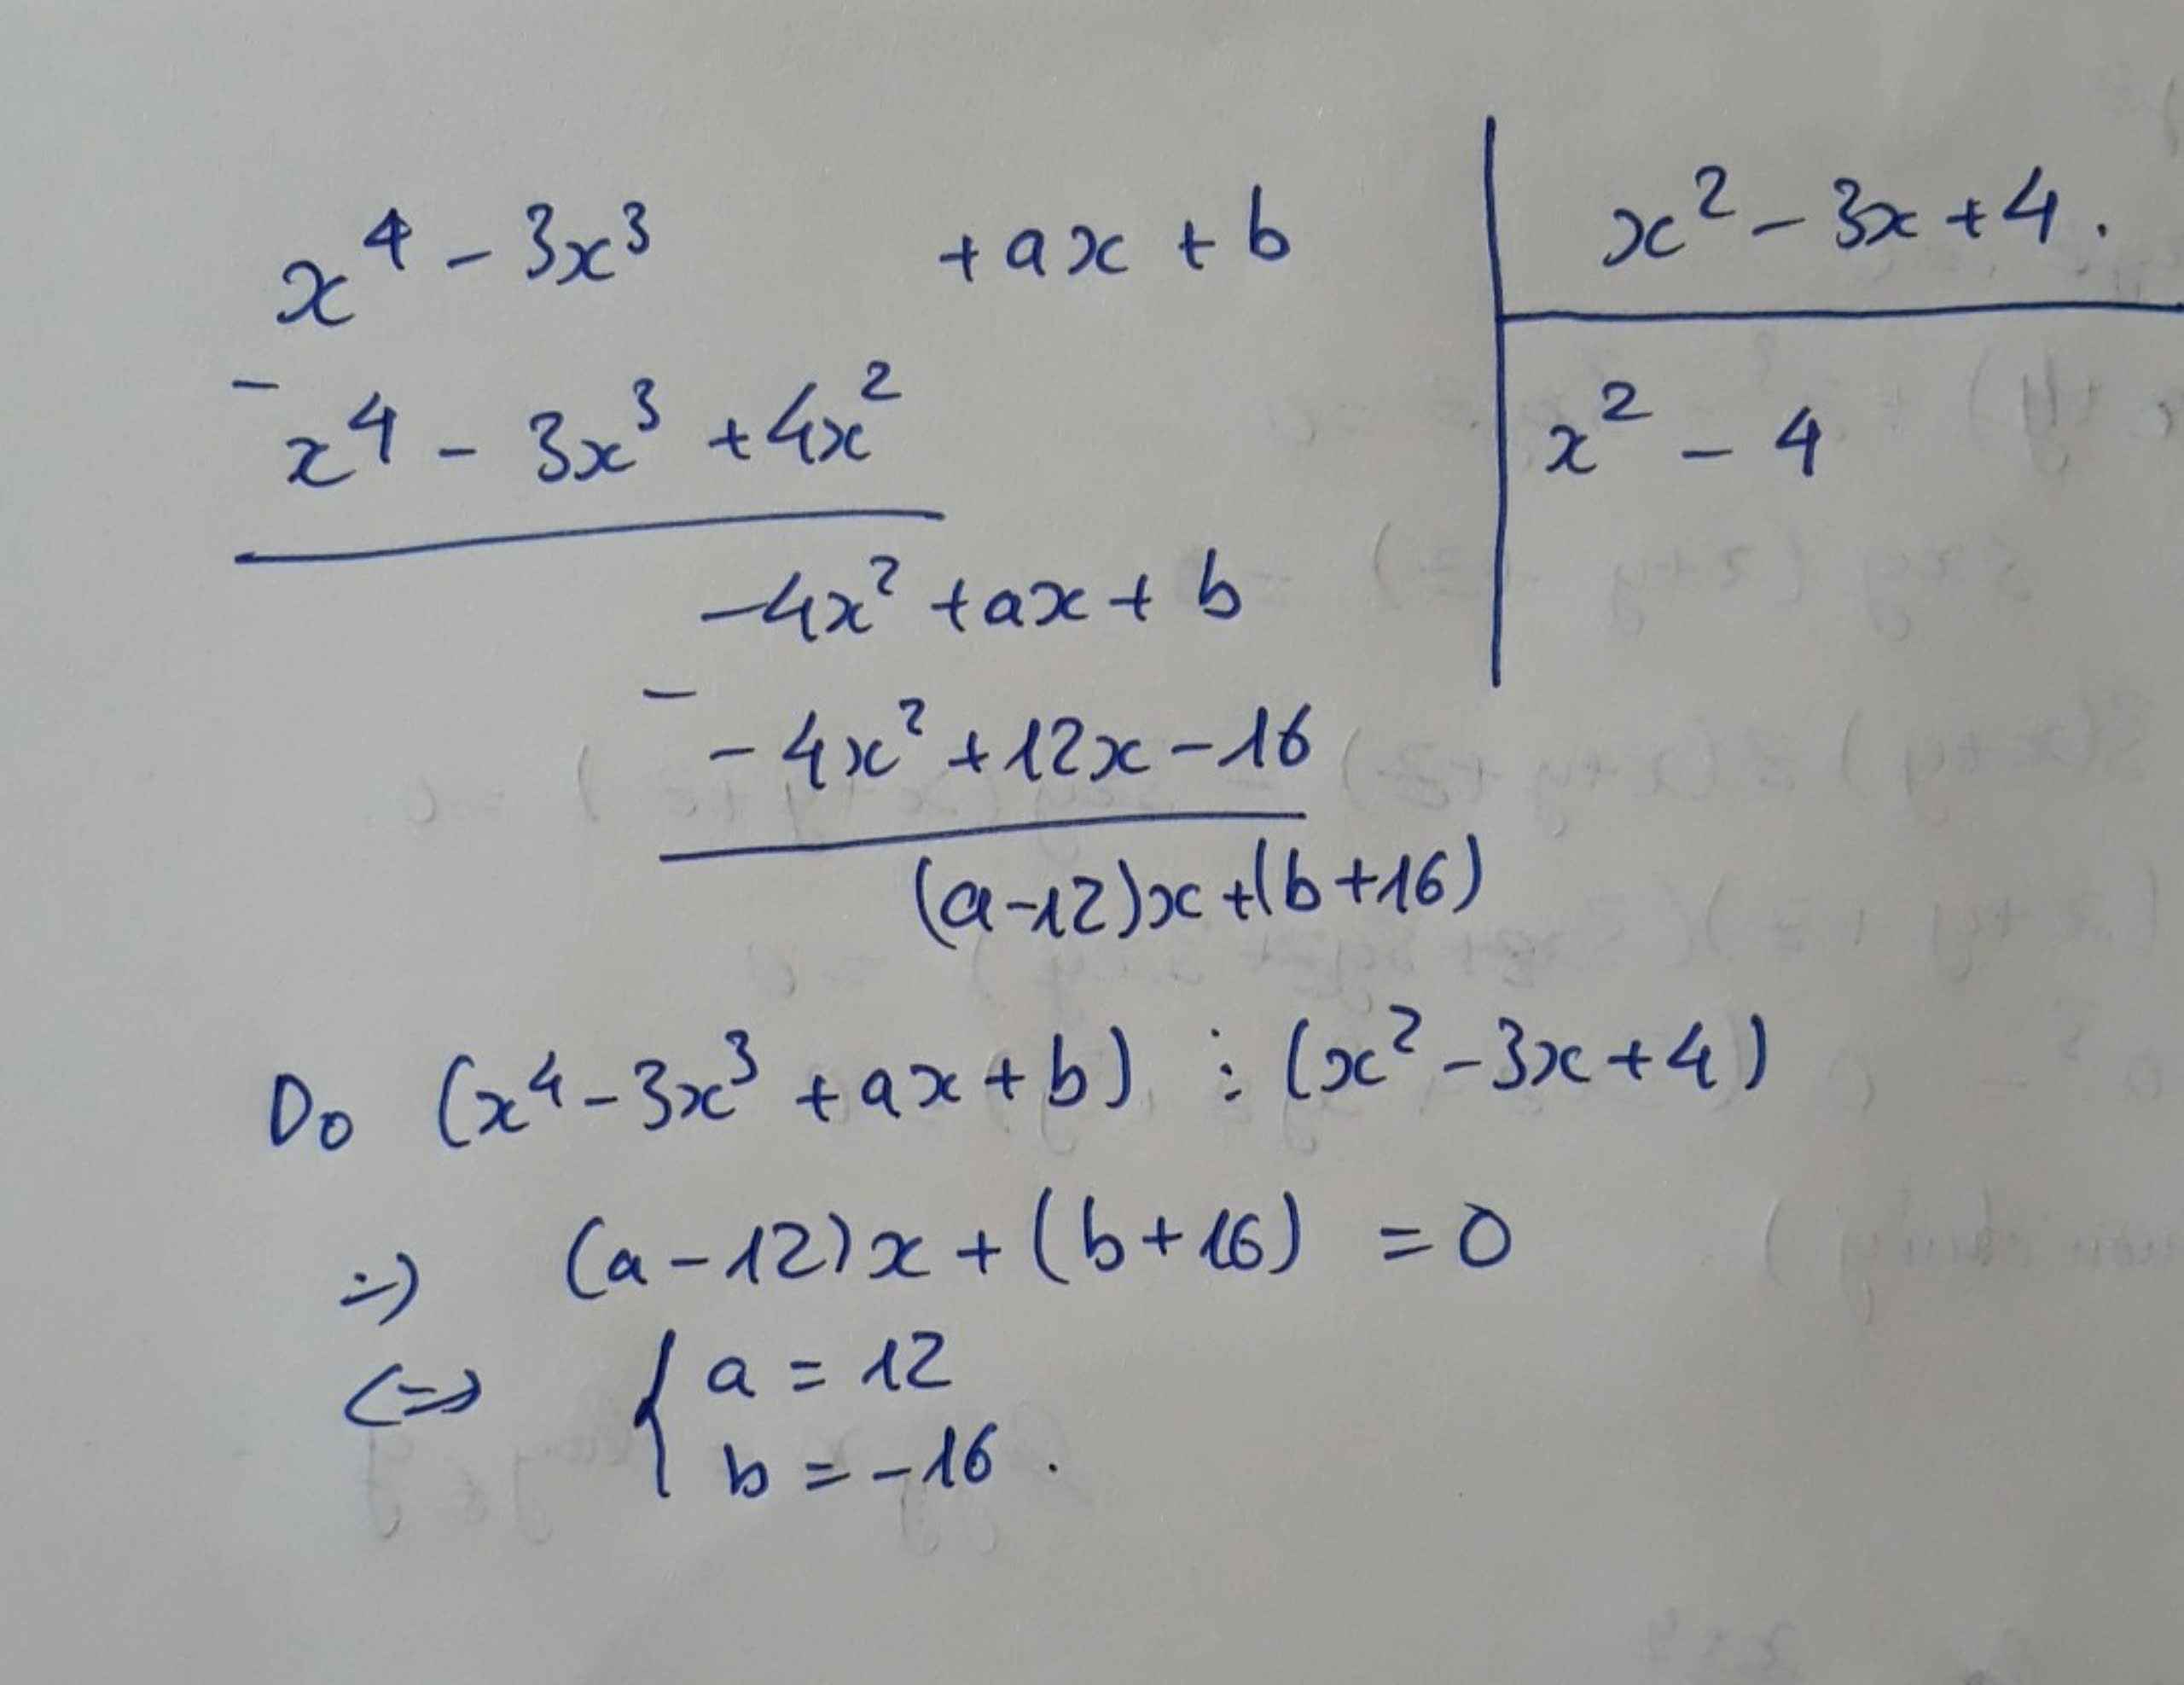 x⁴ - 3x³ + ax + b
x² - 3x + 4.
- x⁴ - 3x³ + 4x²
x² - 4
-4x² + ax + b
- - 4x² + 12x - 16
(a-12)x + (b+16)
Do (x⁴ - 3x³ + ax + b) ⋮ (x² - 3x + 4)
=) (a - 12)x + (b + 16) = 0
<=> { a = 12
b = -16 .